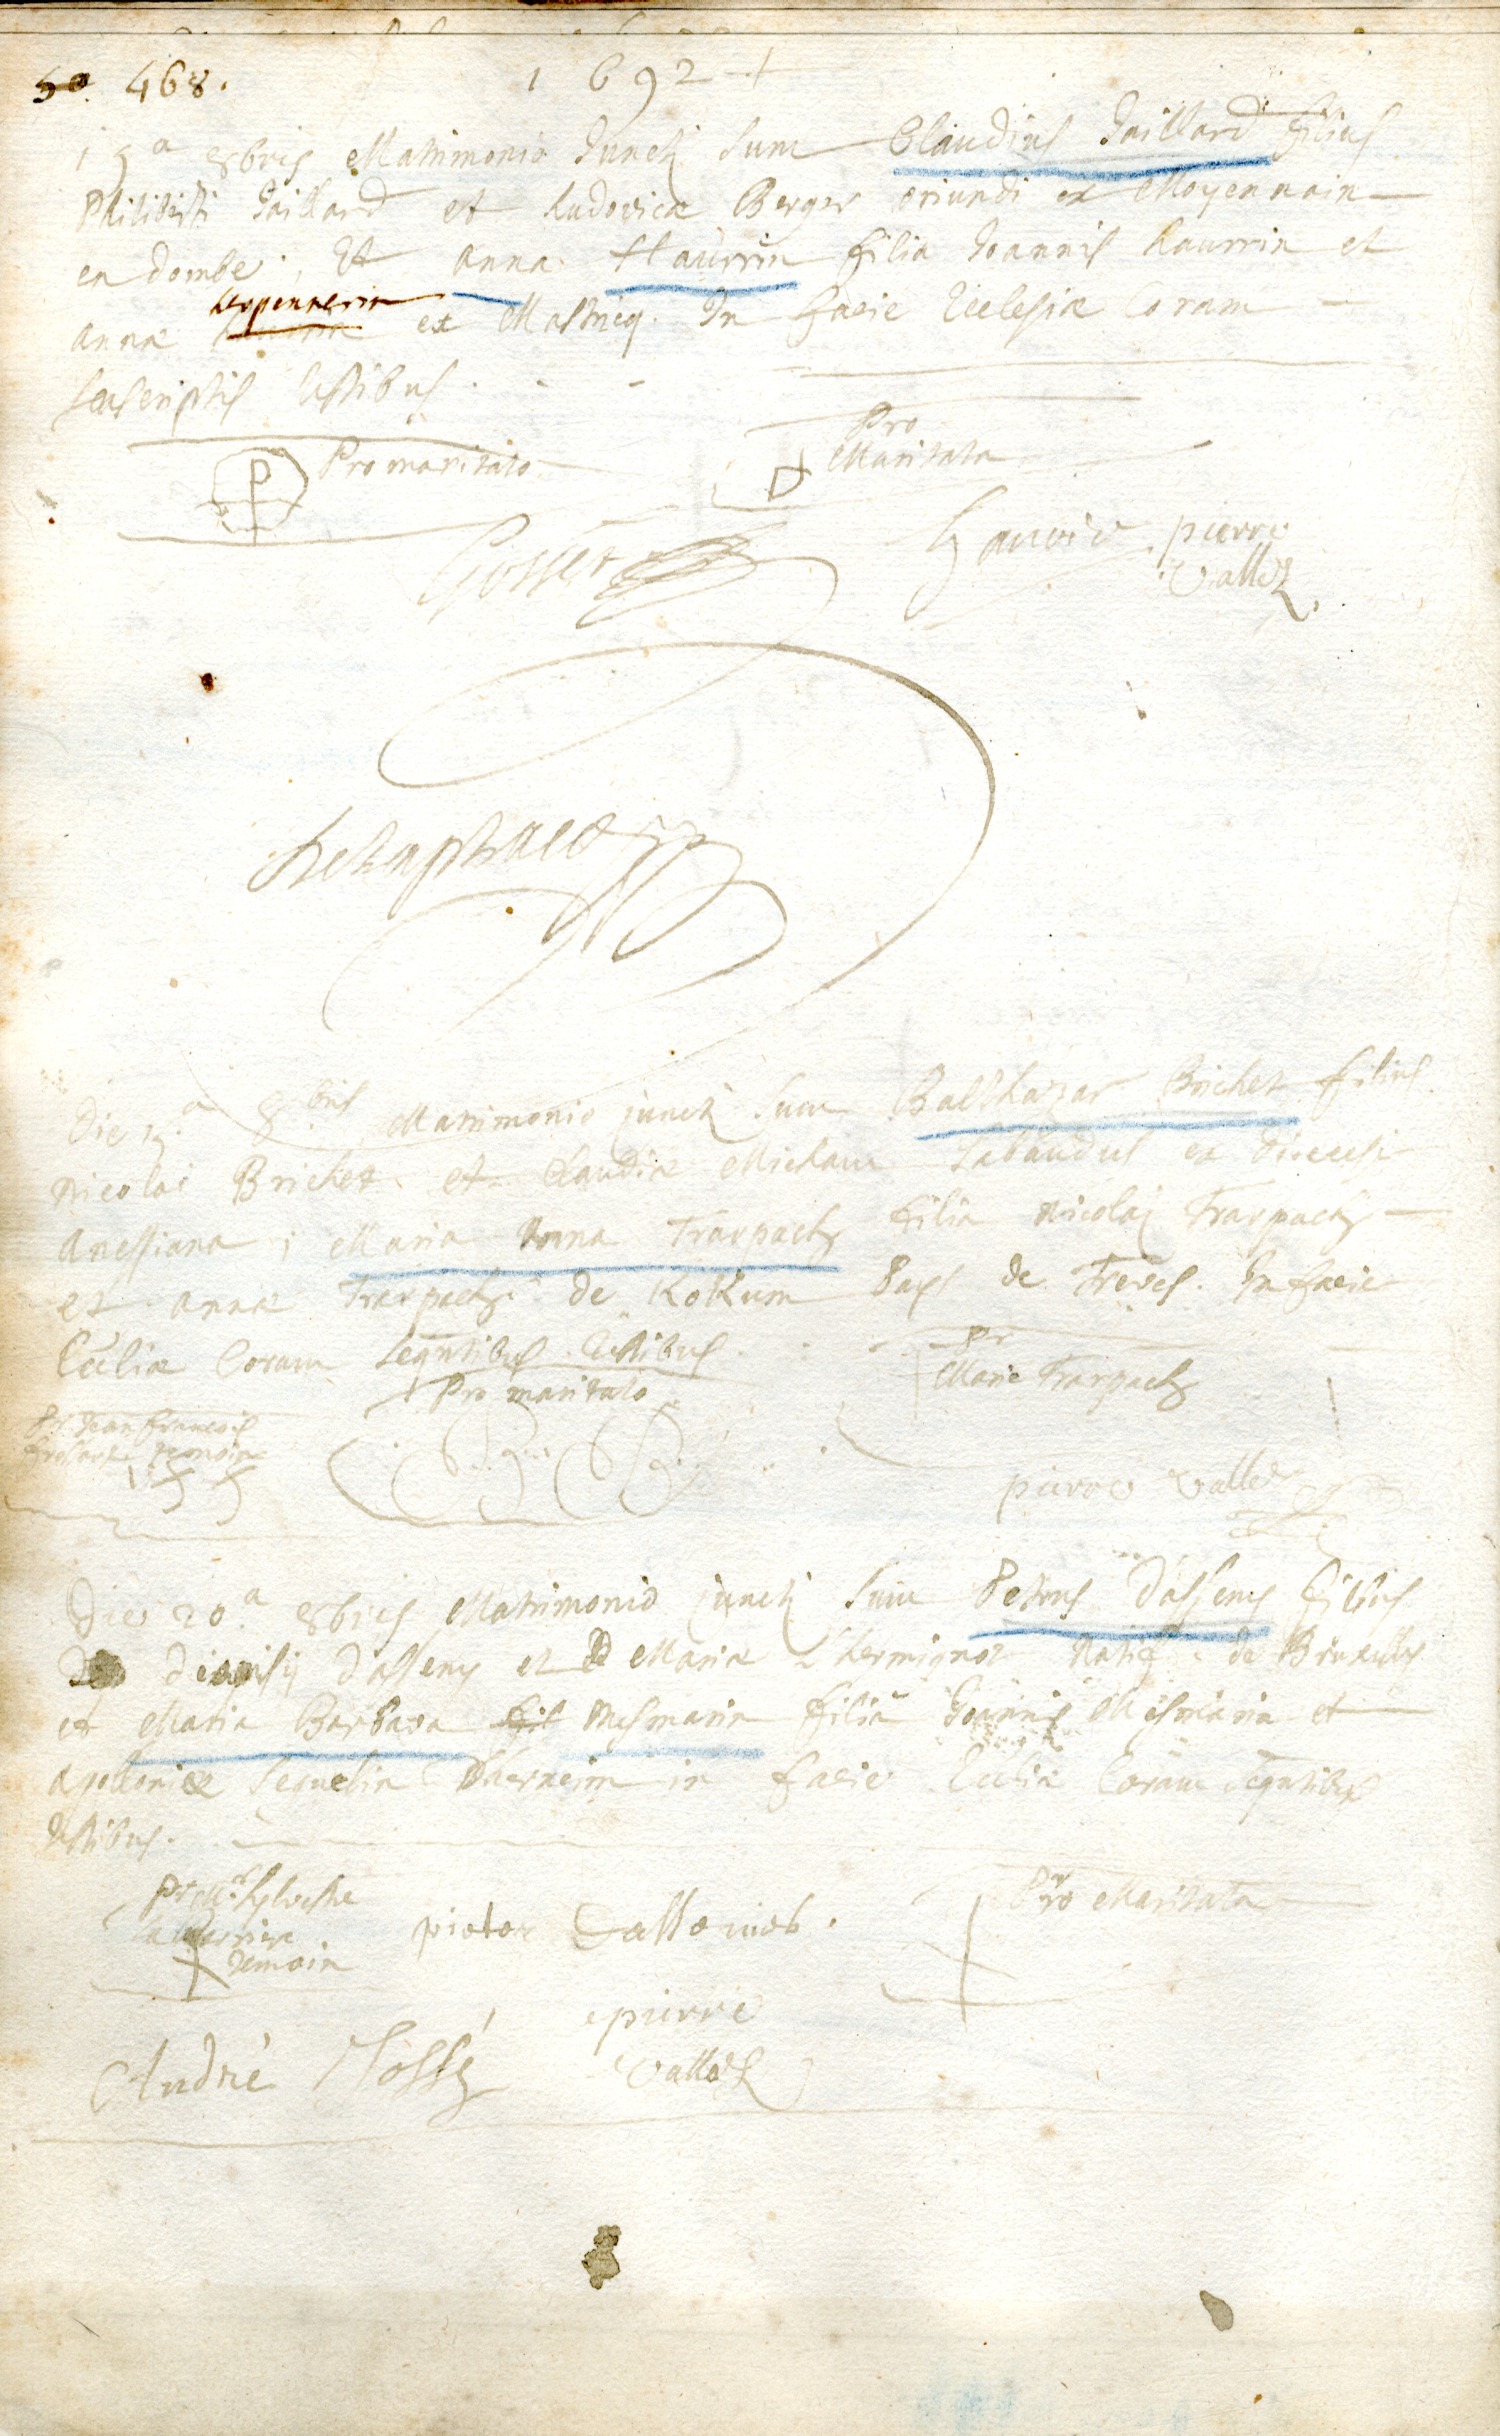 50. 468. 1692
15ª 8bris Matrimonio Juncti Sunt Claudius Gaillard filius
Philiberti Gaillard et Ludovicæ Berger oriundi ex Moyennain
en dombe, Et anna Haurrin filia Joannis haurrin et
Leyennerin
annæ ex Mastricq. In facie Ecclesiæ Coram
Testibus.
Pro maritato
Pro
Maritata
P
Gosset
pierre
Vallez
Die 8.bris Matrimonio juncti Sunt Balthazar Brichet filius
Nicolai Brichet et Claudiæ Michaux Sabaudus ex Diecesi
Anessiana; Maria Anna Trarpach filia Nicolaj Trarpach
et annæ Trarpach de KoKum Pays de Treves. In facie
Eccliæ Coram Seqntibus Testibus.
Pro maritato
Pr
Marie Trarpach
Pr Jean francois
temoin
pierre Vallez
Die 20.ª 8bris Matrimonio juncti Sunt Petrus Dasseny filius
dionisij Dasseny et Mariæ Lhermignot Natif de Bruxelles
et Maria Barbara fil Mesmarin filia Joannis Mesmarin et
Apolloniæ Sequelin in facie Eccliæ Coram Seqntibus
Testibus.
Pr Mr Sylvestre
temoin
pieter
Pro Maritata
pierre
Vallez
André Mossé